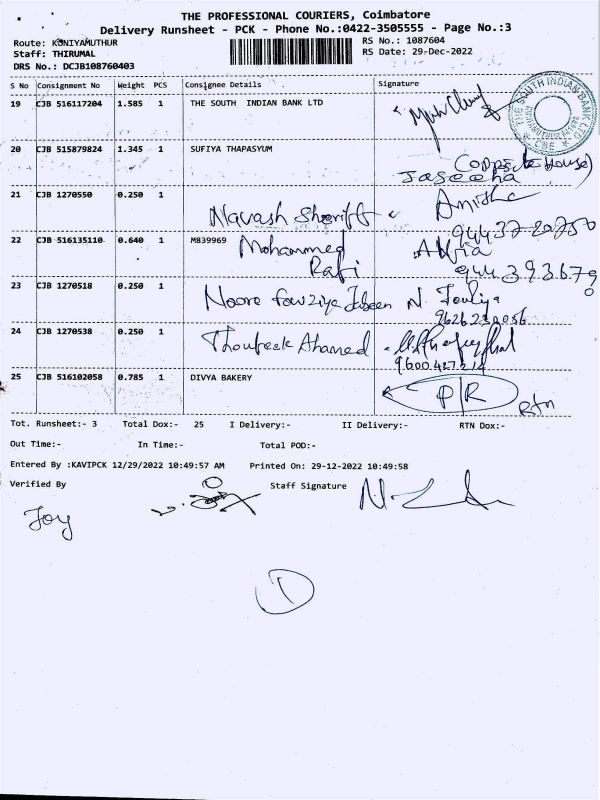 THE PROFESSIONAL COURIERS, Coimbatore
Delivery Runsheet - PCK - Phone No.:0422-3505555 - Page No.:3
Route: KONIYAMUTHUR
RS No.: 1087604
Staff: THIRUMAL
RS Date: 29-Dec-2022
DRS No.: DCJB108760403
S No Consignment No Weight PCS Consignee Details Signature
19 CJB 516117204 1.585 1 THE SOUTH INDIAN BANK LTD
THE SOUTH INDIAN BANK LTD.
CBE
20 CJB 515879824 1.345 1 SUFIYA THAPASYUM
House)
Jaseena
21 CJB 1270550 0.250 1
Navash Sheriff
Anisha
9443720750
22 CJB 516135110 0.640 1 M839969
Mohammed Rafi
Alfia
23 CJB 1270518 0.250 1
Noore Fouziya Jabeen N. Fouziya
9626230056
24 CJB 1270538 0.250 1
Thoufeek Ahamed
9600427214
25 CJB 516102058 0.785 1 DIVYA BAKERY
P/R
Rtn
Tot. Runsheet:- 3 Total Dox:- 25 I Delivery:- II Delivery:- RTN Dox:-
Out Time:- In Time:- Total POD:-
Entered By :KAVIPCK 12/29/2022 10:49:57 AM Printed On: 29-12-2022 10:49:58
Verified By Staff Signature
Joy